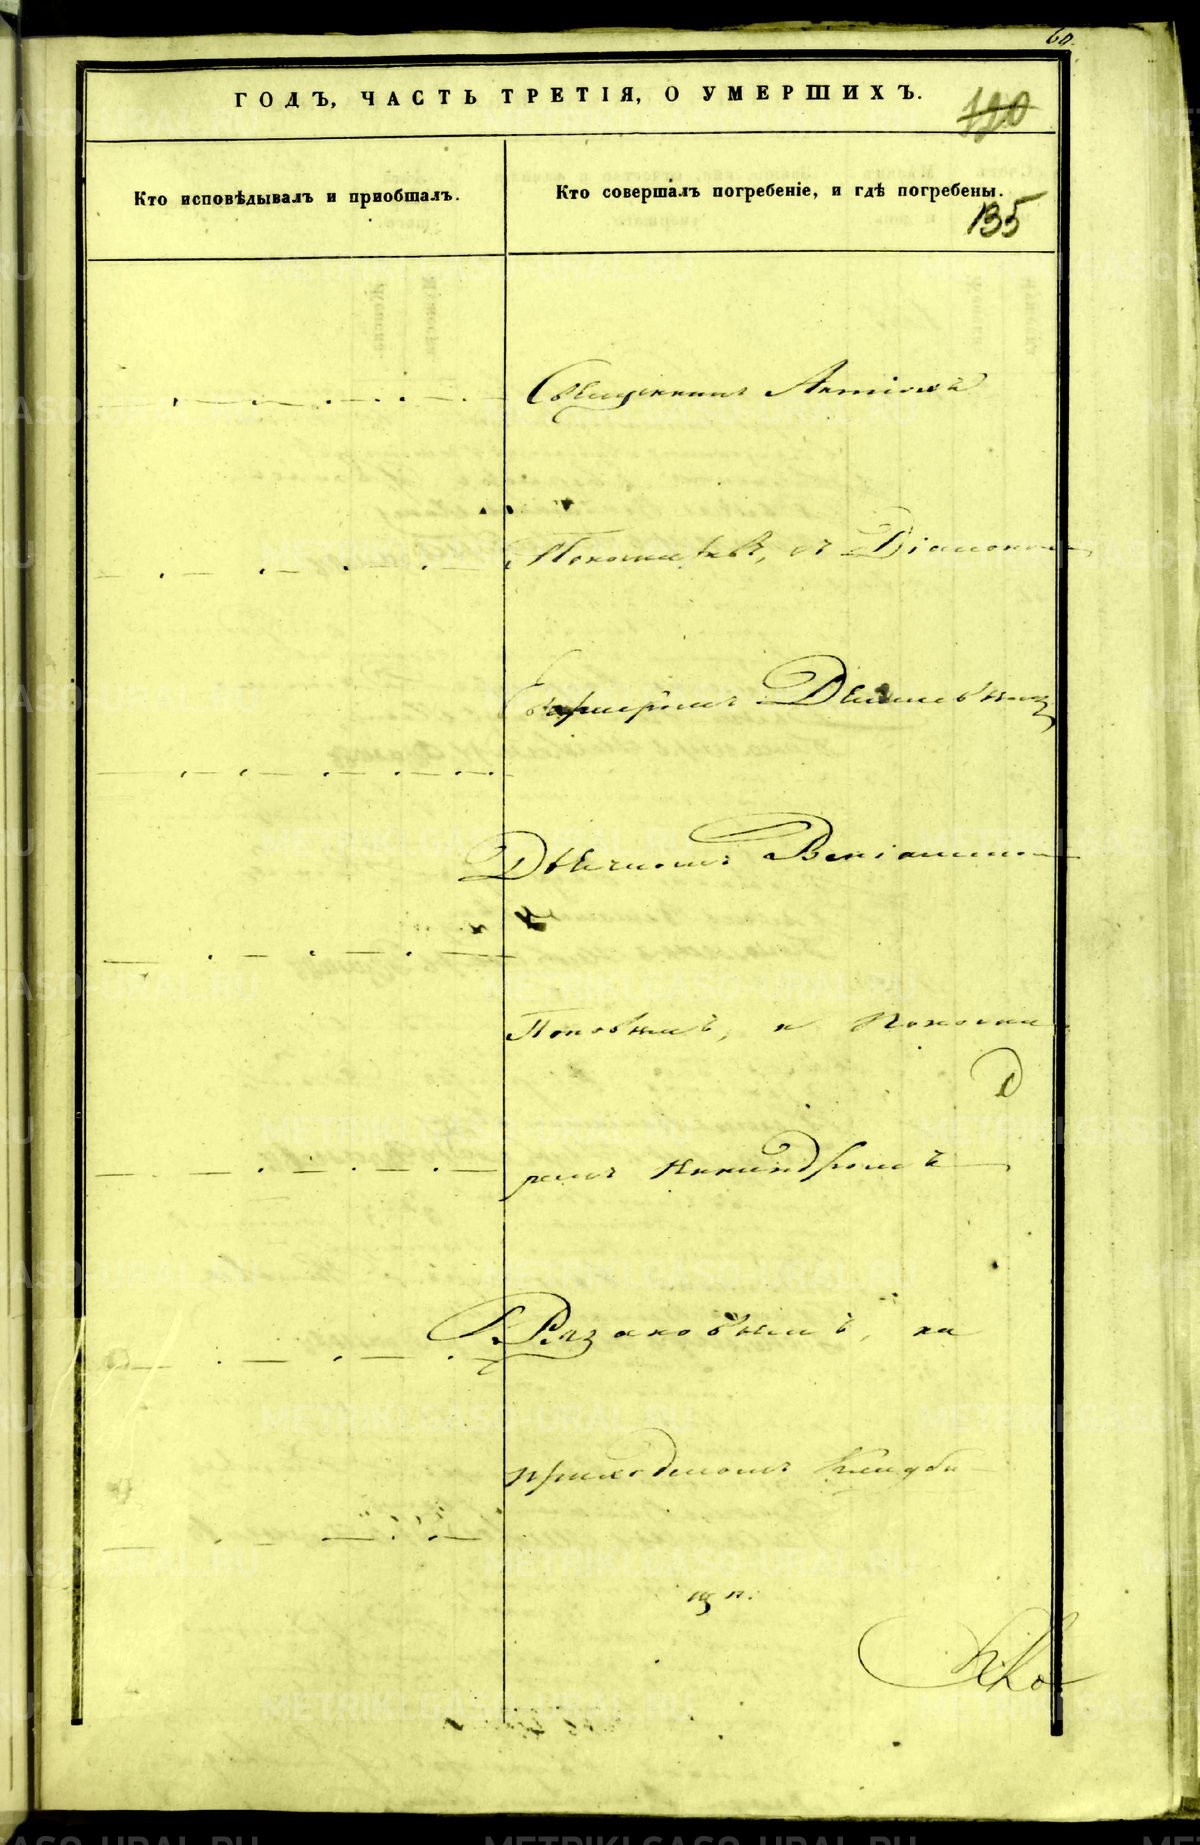 60.
ГОДЪ, ЧАСТЬ ТРЕТІЯ, О УМЕРШИХЪ.
120
Кто исповѣдывалъ и пріобщалъ.
Кто совершалъ погребеніе, и гдѣ погребены.
135
Священникъ Антіохъ
съ Діакономъ
Дьячкомъ Веніамино
Поповымъ, и Понома
ремъ Никандромъ
Рязановымъ, на
приходскомъ кладби
щѣ.